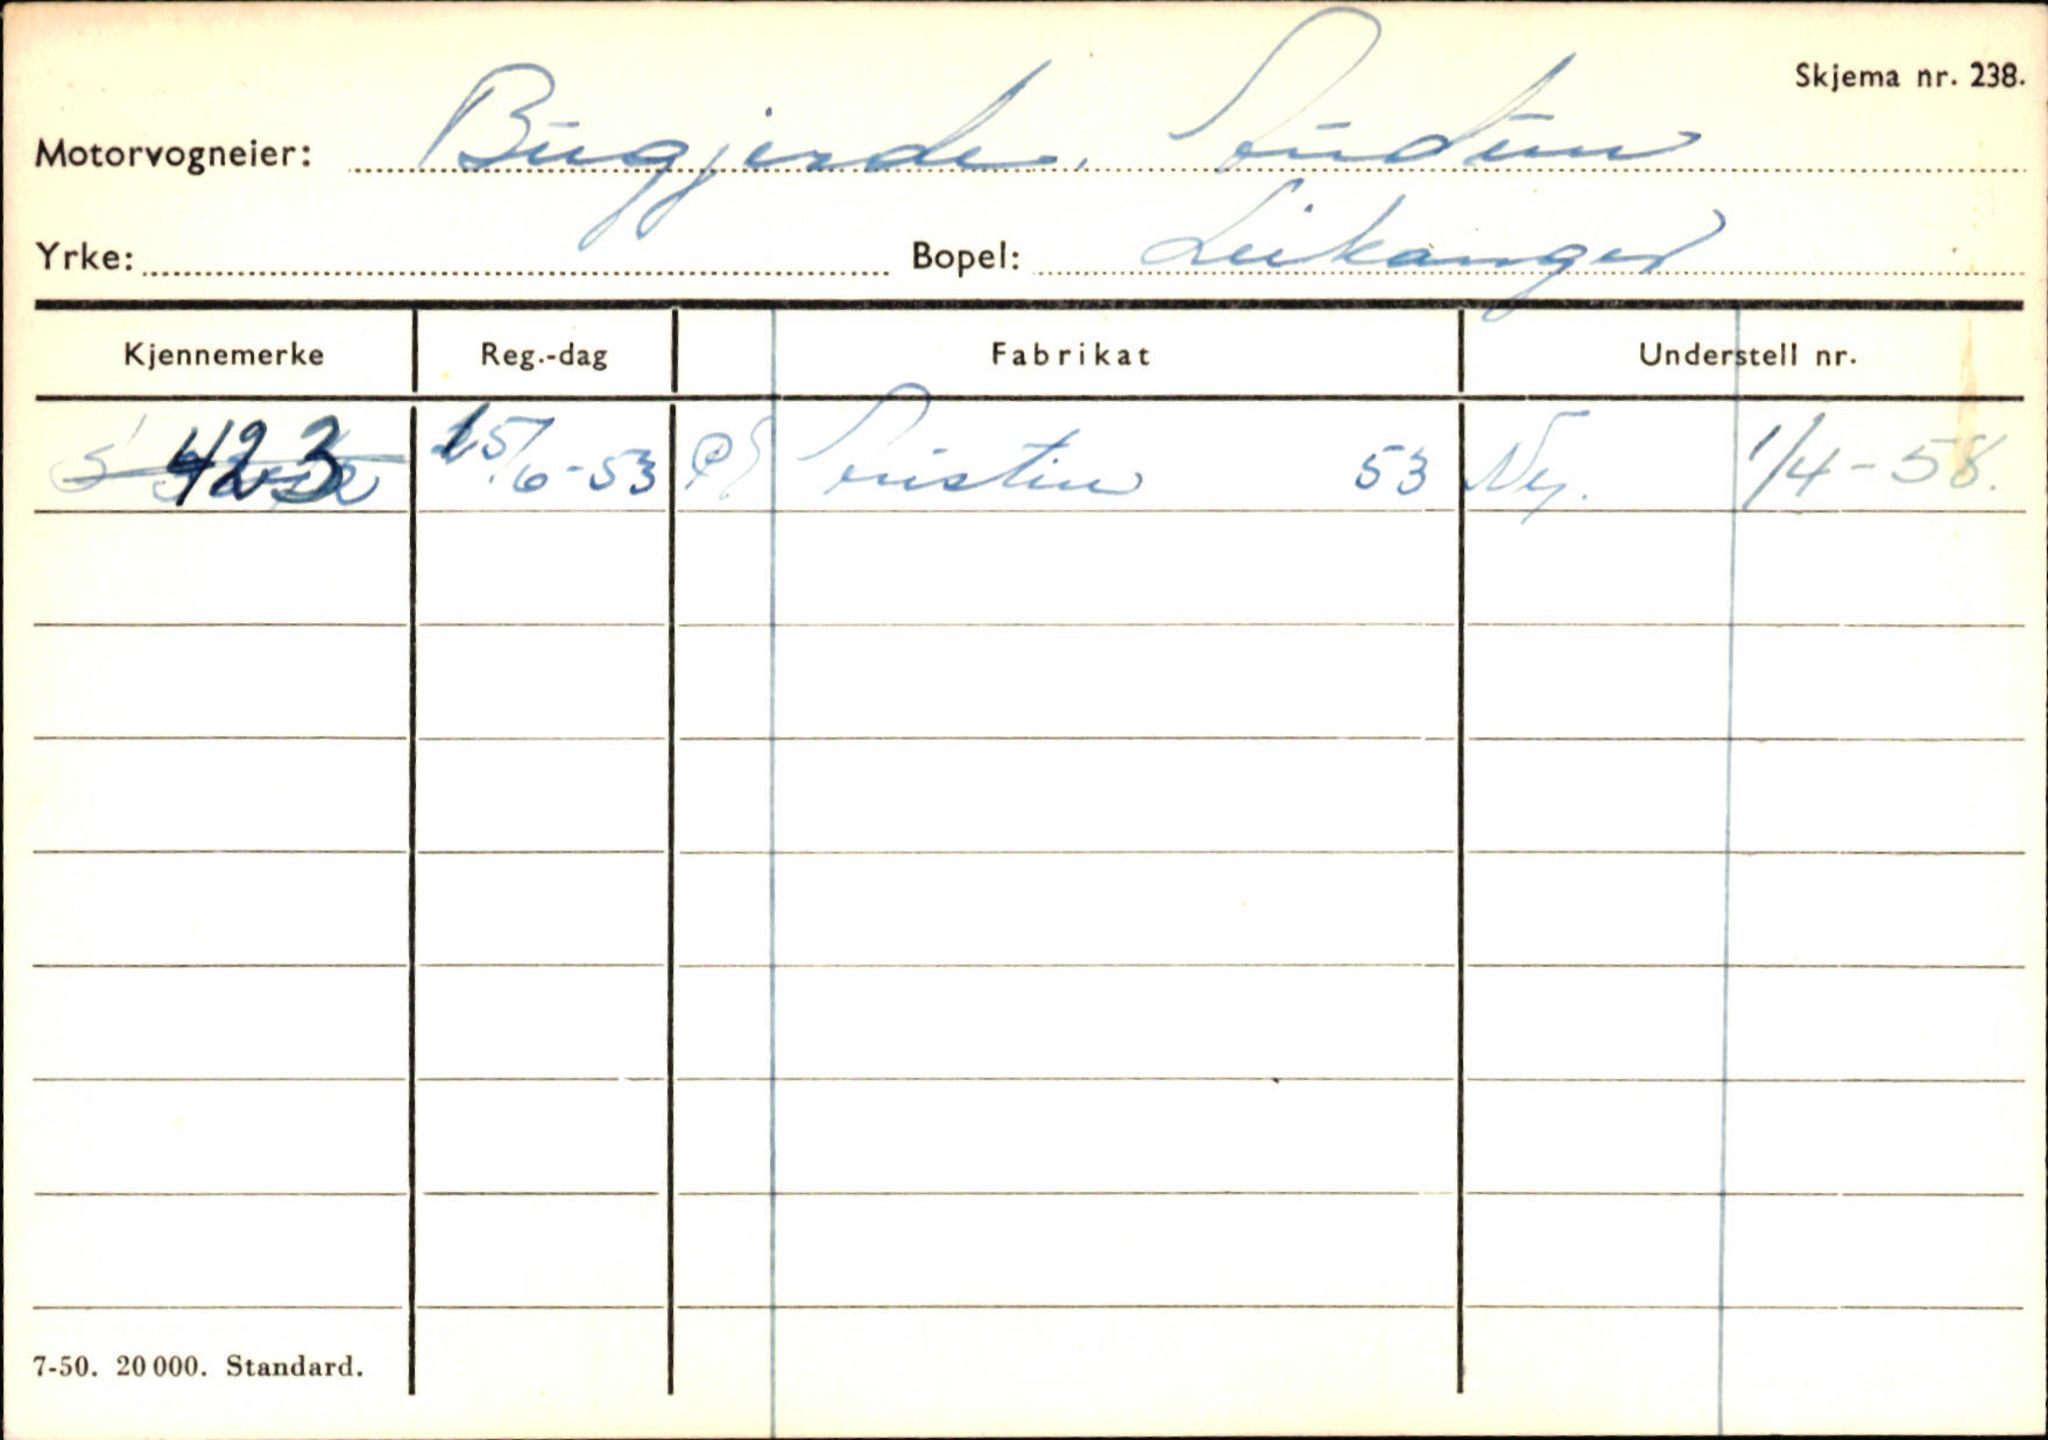 Skjema nr. 238.
Motorvogneier: Bugjerde,
Yrke: Bopel: Leikanger
Kjennemerke Reg.-dag Fabrikat Understell nr.
423 15/6-53 P Austin 53 Ny. 1/4-58.
7-50. 20 000. Standard.